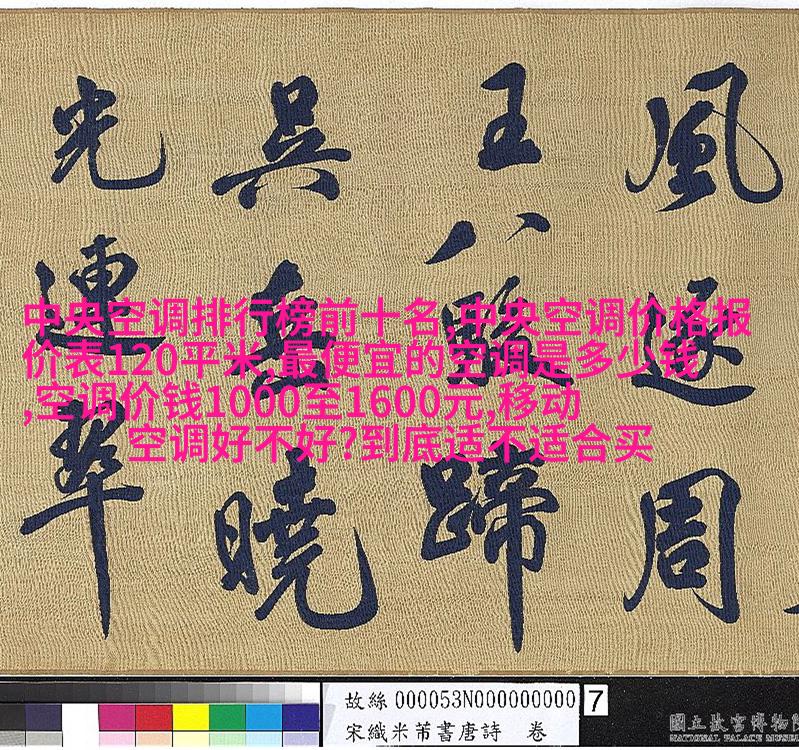 風逐周
王八駿蹄
吳曉
光連翠
中央空调排行榜前十名,中央空调价格报
价表120平米,最便宜的空调是多少钱
,空调价钱1000至1600元,移动
空调好不好?到底适不适合买
故絲000053N000000000 7
宋織米芾書唐詩 卷
國立故宮博物院
NATIONAL PALACE MUSEUM